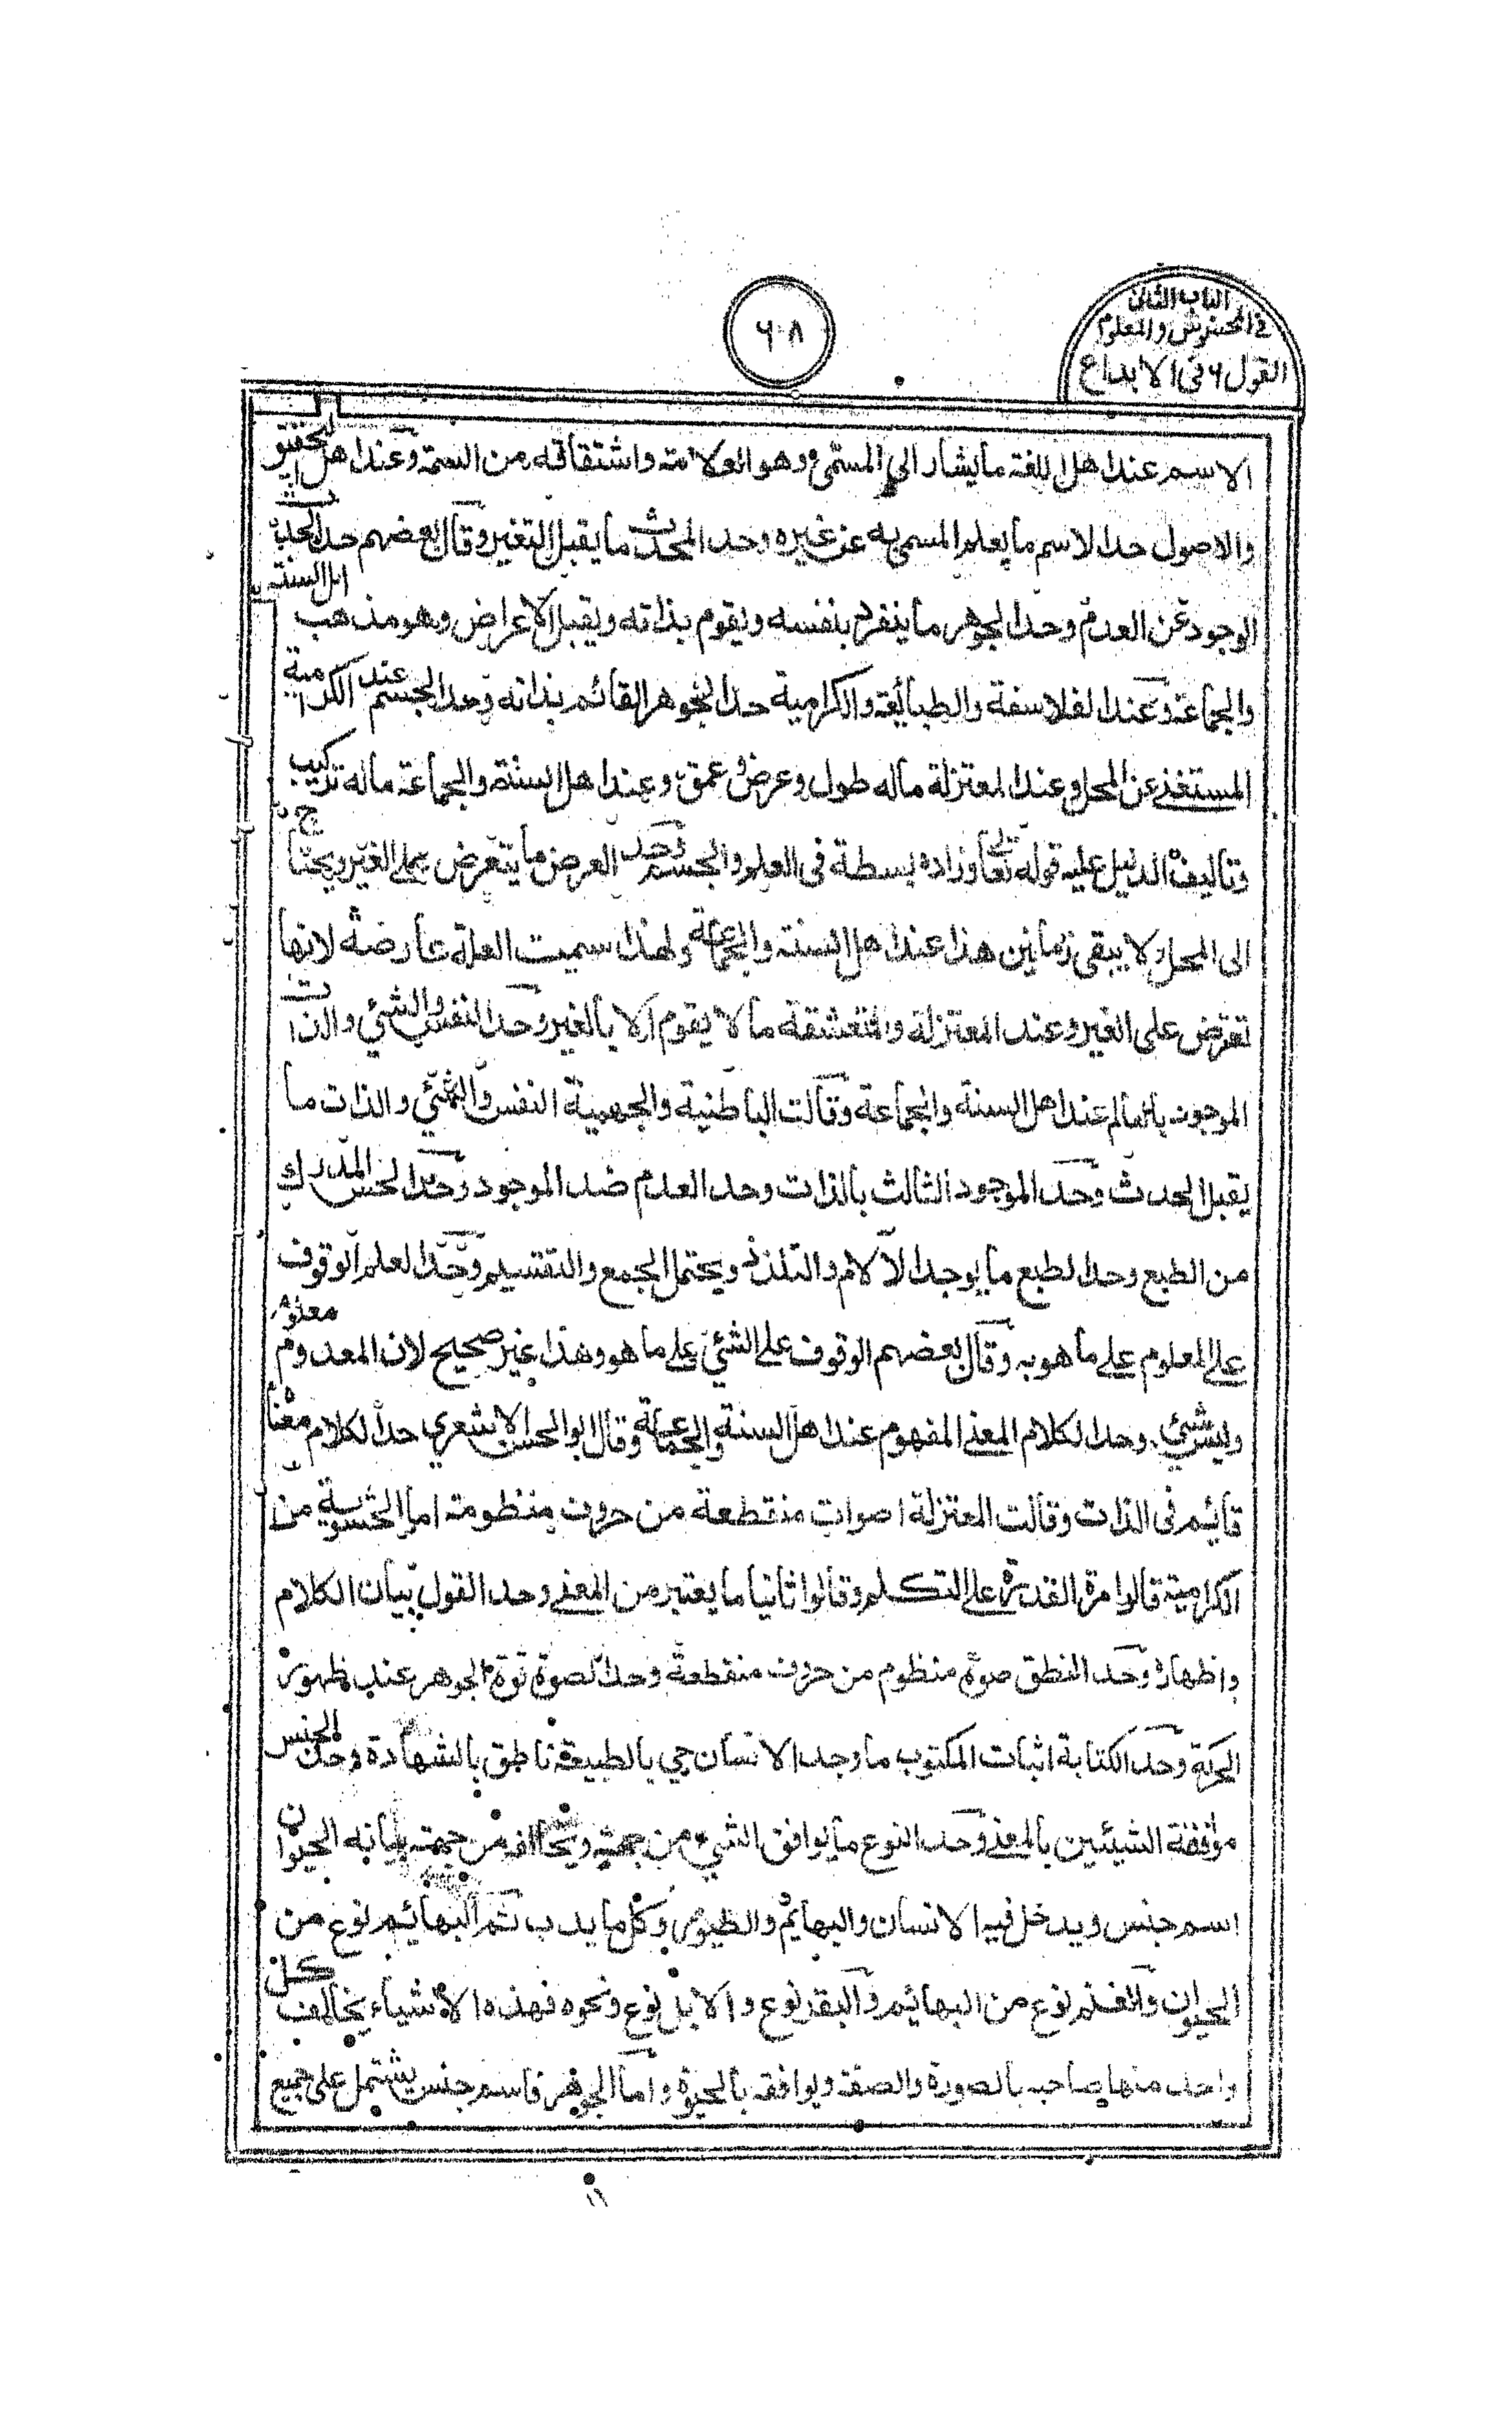 الباب الثانى
فى المحسوس والمعلوم
القول ٦ فى الابداع
٦٠٨
الاسم عند اهل اللغة ما يشار الى المسمى وهو العلامة واشتقاقه من السمة وعند اهل التحقيق
والاصول حد الاسم ما يعلم المسمى به عن غيره وحد المحدث ما يقبل التغير وقال بعضهم حد الحدث
الوجود عن العدم وحد الجوهر ما ينفرد بنفسه ويقوم بذاته ويقبل الاعراض وهو مذهب اهل السنة
والجماعة وعند الفلاسفة والطبائعة والكرامية حد الجوهر القائم بذاته وحد الجسم عند الكرامية
المستغنى عن المحل وعند المعتزلة ماله طول وعرض وعمق وعند اهل السنة والجماعة ماله تركيب
وتاليف الدليل عليه قوله تعالى وزاده بسطة فى العلم والجسم وحد العرض ما يتعرض على الغير ويحتاج
الى المحل ولا يبقى زمانين هذا عند اهل السنة والجماعة ولهذا سميت العلة عارضة لانها
تعترض على الغير وعند المعتزلة والمتعشقة ما لا يقوم الا بالغير وحد النفس والشئ والذات
الموجود بالعالم عند اهل السنة والجماعة وقالت الباطنية والجهمية النفس والشئ والذات ما
يقبل الحدث وحد الموجود الثالث بالذات وحد العدم ضد الموجود وحد الحس المدرك
من الطبع وحد الطبع ما يوجد الالم والتلذذ ويحتمل الجمع والتقسيم وحد العلم الوقوف
على المعلوم على ما هو به وقال بعضهم الوقوف على الشئ على ما هو وهذا غير صحيح لان المعدوم معلوم
وليس بشئ وحد الكلام المعنى المفهوم عند اهل السنة والجماعة وقال ابو الحسن الاشعرى حد الكلام معناه
قائم فى الذات وقالت المعتزلة اصوات منقطعة من حروف منظومة اما الحشوية من
الكرامية قالوا مرة القدرة على التكلم وقالوا ثانيا ما يعتبر من المعنى وحد القول بيان الكلام
واظهاره وحد النطق صوة منظوم من حروف منقطعة وحد الصوة قوة الجوهر عند ظهور
الحركة وحد الكتابة اثبات المكتوب ما وحد الانسان حى بالطبيعة ناطق بالشهادة وحد الجنس
موافقة الشيئين بالمعنى وحد النوع ما يوافق الشئ من جهة ويخالفه من جهة بيانه الحيوان
اسم جنس ويدخل فيه الانسان والبهايم والطيور وكل ما يدب ثم البهائم نوع من
الحيوان والغنم نوع من البهائم والبقر نوع والابل نوع ونحوه فهذه الاشياء يخالف كل
واحد منها صاحبه بالصورة والصفة ويوافقه بالحيوة واما الجوهر فاسم جنس يشتمل على جميع